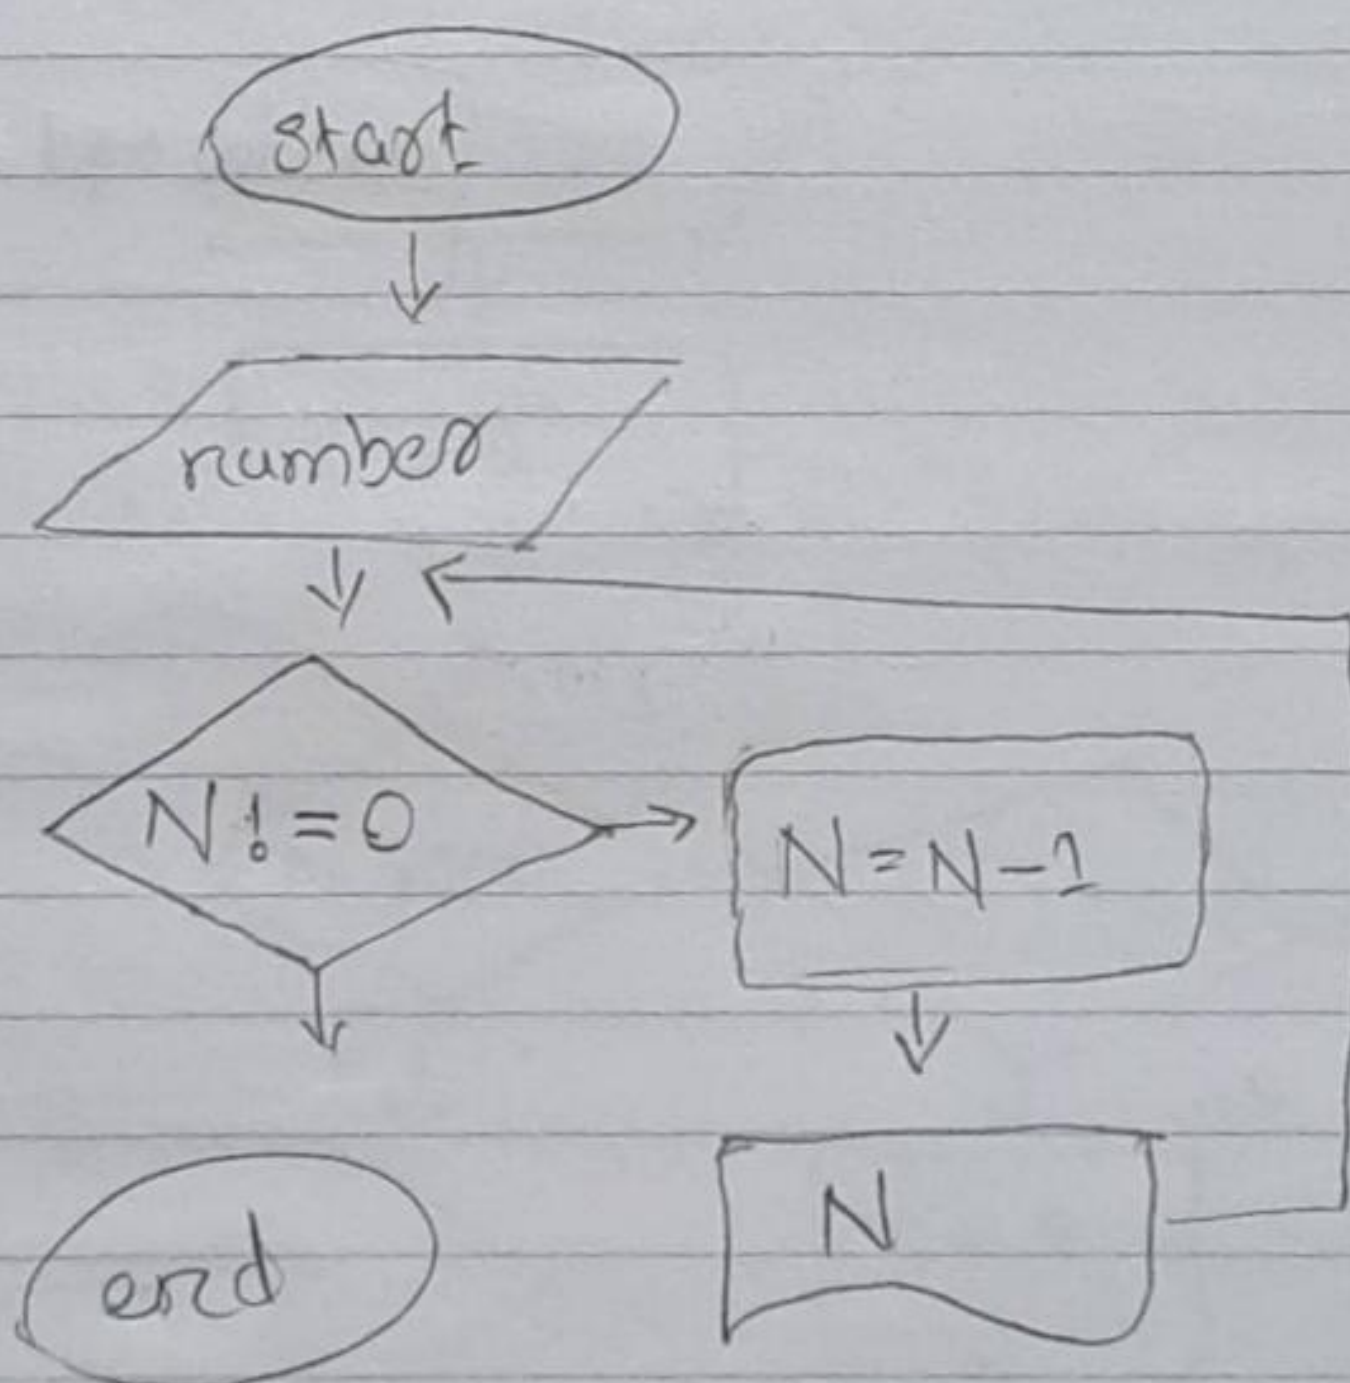 start
number
N != 0
N = N - 1
N
end